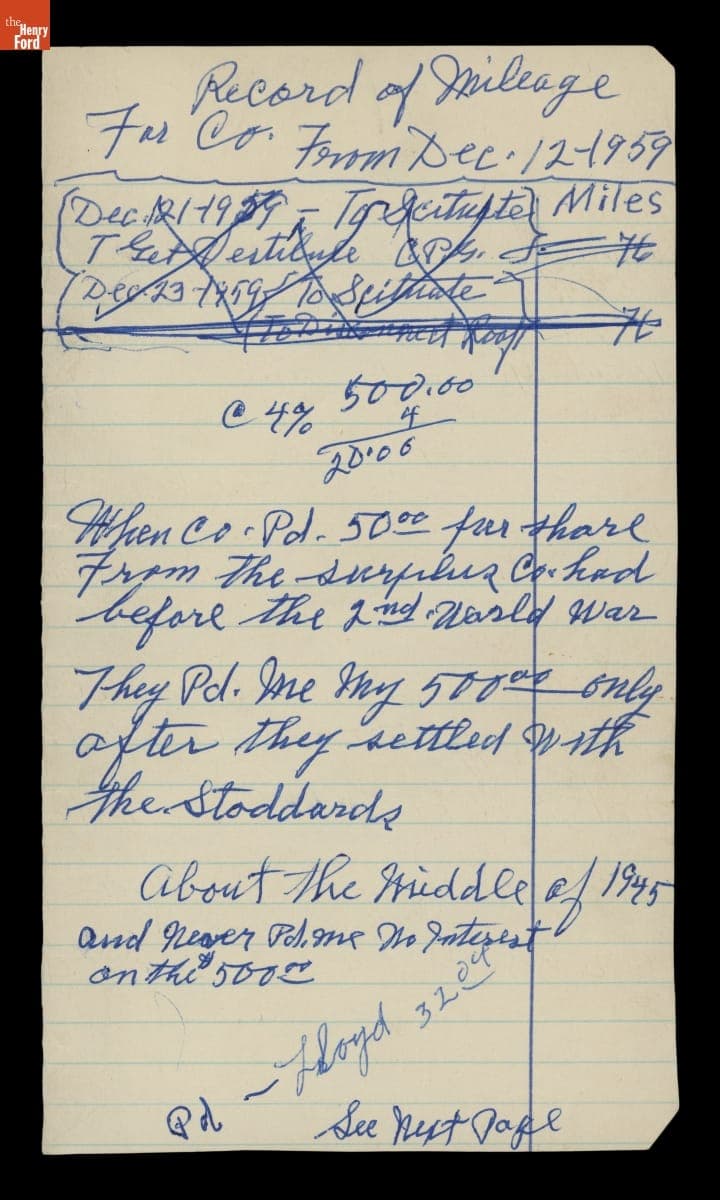 the Henry Ford
Record of Mileage
For Co. From Dec. 12-1959
Dec. 21-1959 - To Scituate Miles
T Get Vestibule C.P.G. 76
Dec. 23-1959 To Scituate
To Disconnect Roof 76
@ 4% 500.00
4
20.00
When Co. Pd. 50.00 per share
From the surplus Co. had
before the 2nd. World War
They Pd. Me My 500.00 only
after they settled With
the Stoddards
About the Middle of 1945
and Never Pd. me No Interest
on the $500.00
Lloyd 32.04
Pd See Next Page